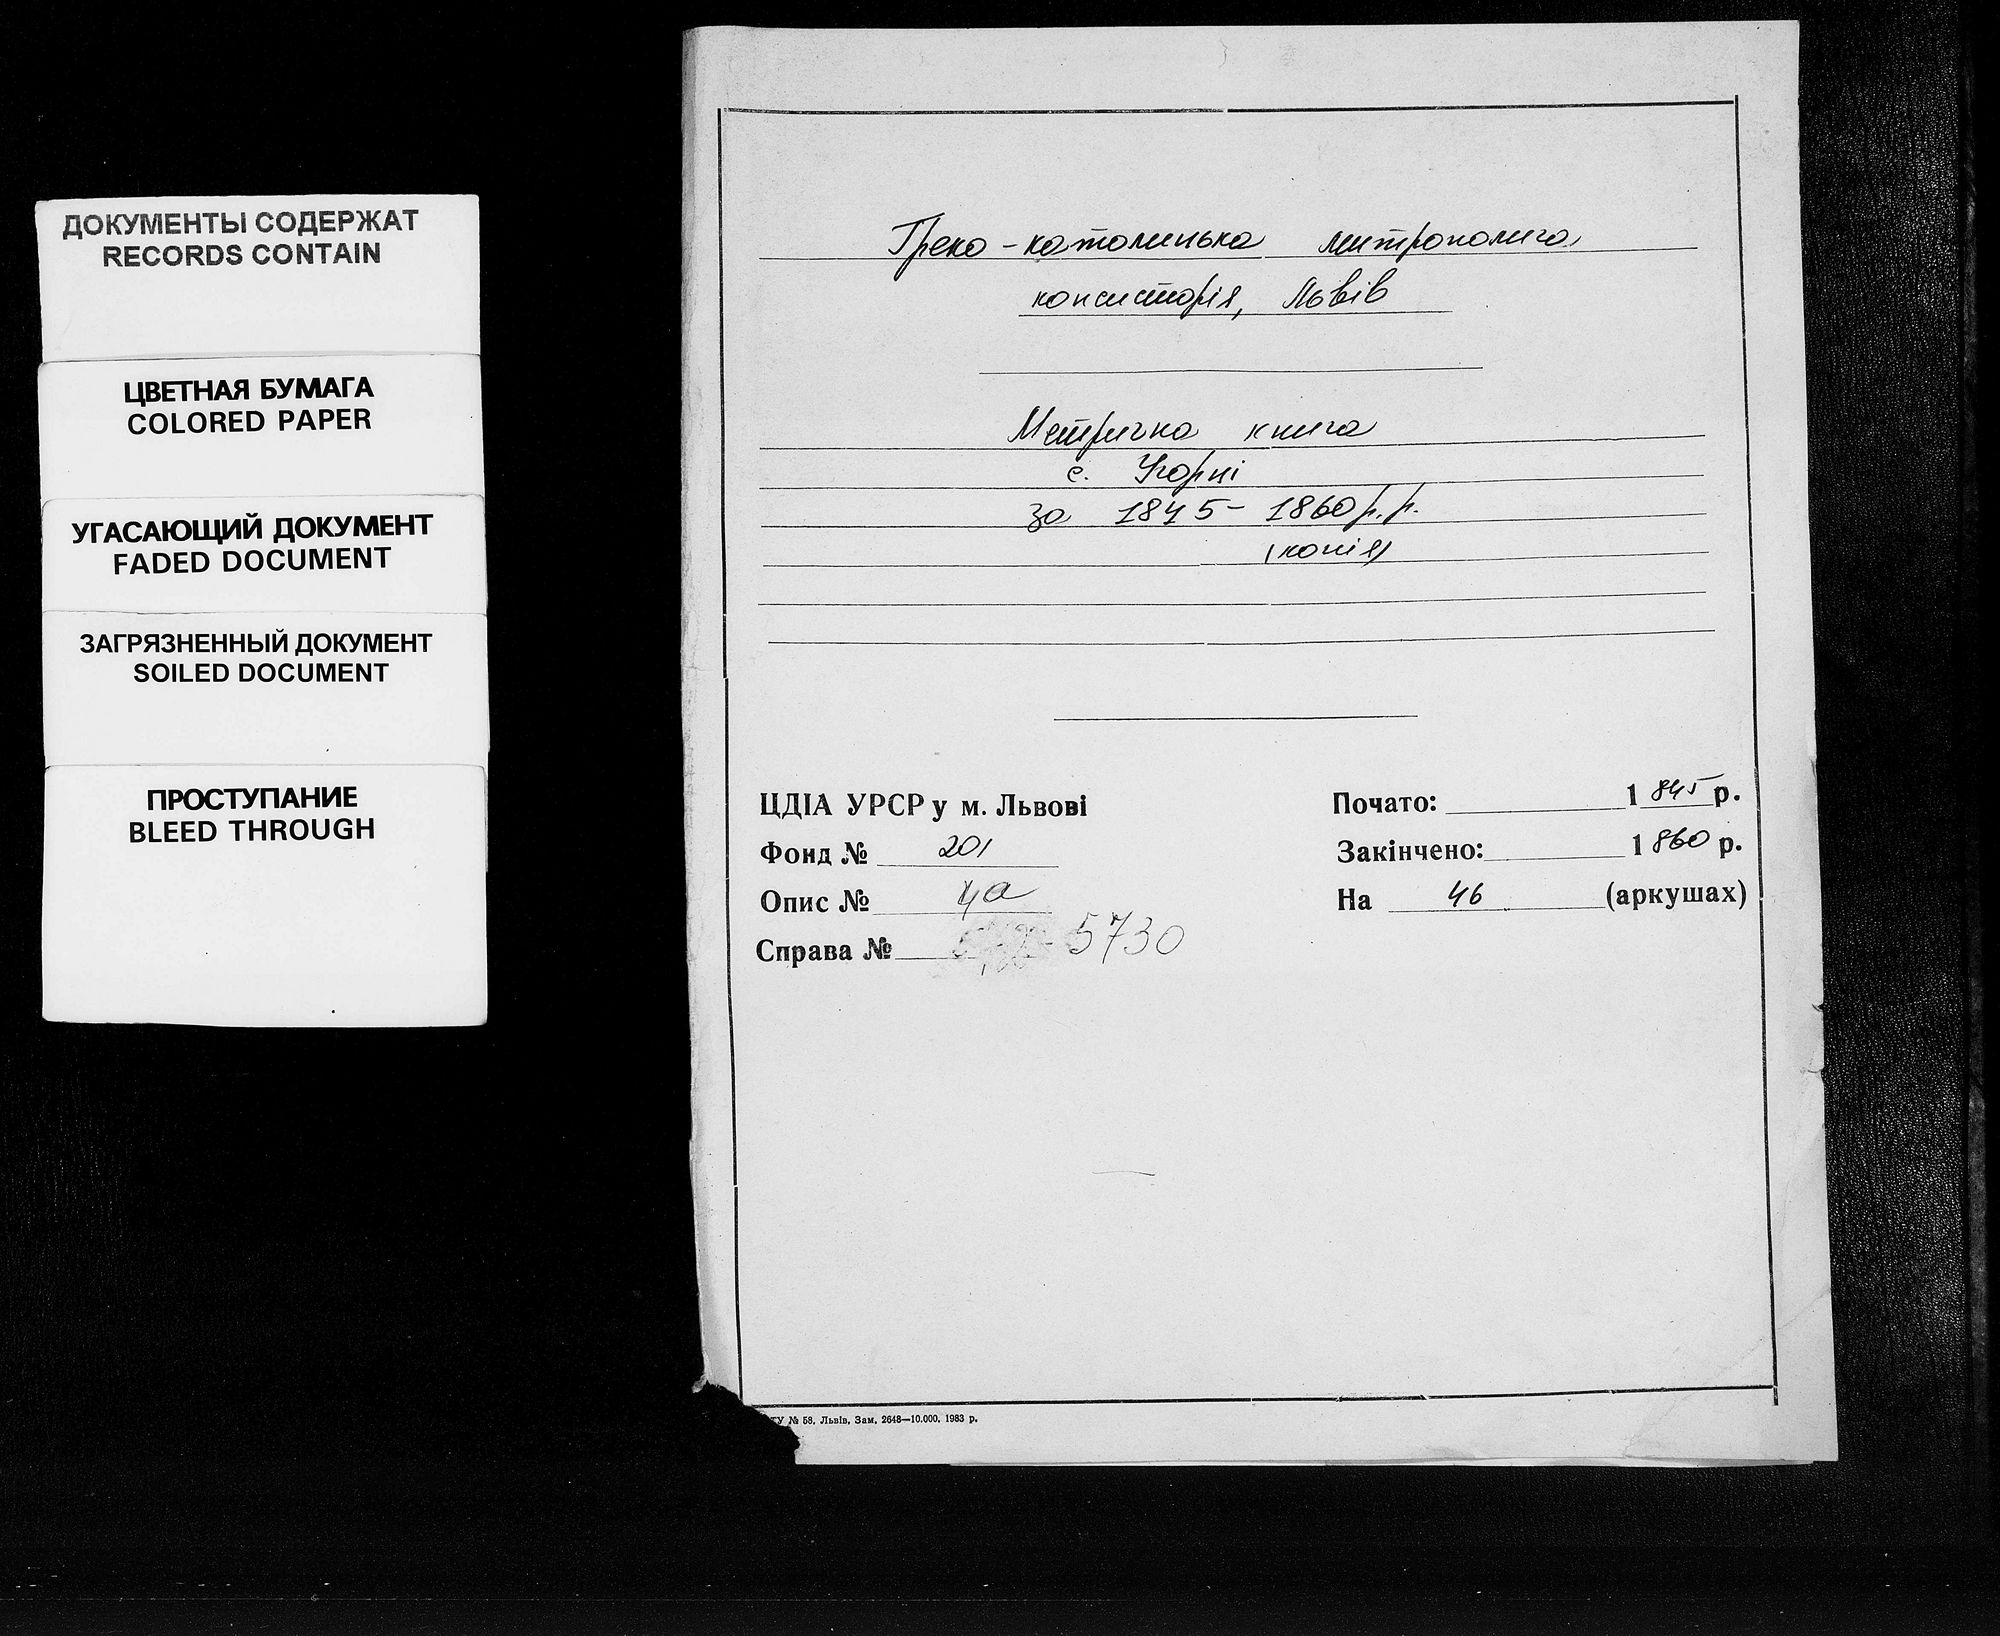 ДОКУМЕНТЫ СОДЕРЖАТ
RECORDS CONTAIN
ЦВЕТНАЯ БУМАГА
COLORED PAPER
УГАСАЮЩИЙ ДОКУМЕНТ
FADED DOCUMENT
ЗАГРЯЗНЕННЫЙ ДОКУМЕНТ
SOILED DOCUMENT
ПРОСТУПАНИЕ
BLEED THROUGH
Греко-католицька митрополича
консисторія, Львів
Метрична книга
с. Угорці
за 1845-1860 р.р.
(копія)
ЦДІА УРСР у м. Львові
Фонд № 201
Опис № 4а
Справа № 5730
Почато: 1845 р.
Закінчено: 1860 р.
На 46 (аркушах)
ТУ № 58, Львів, Зам. 2648—10.000. 1983 р.